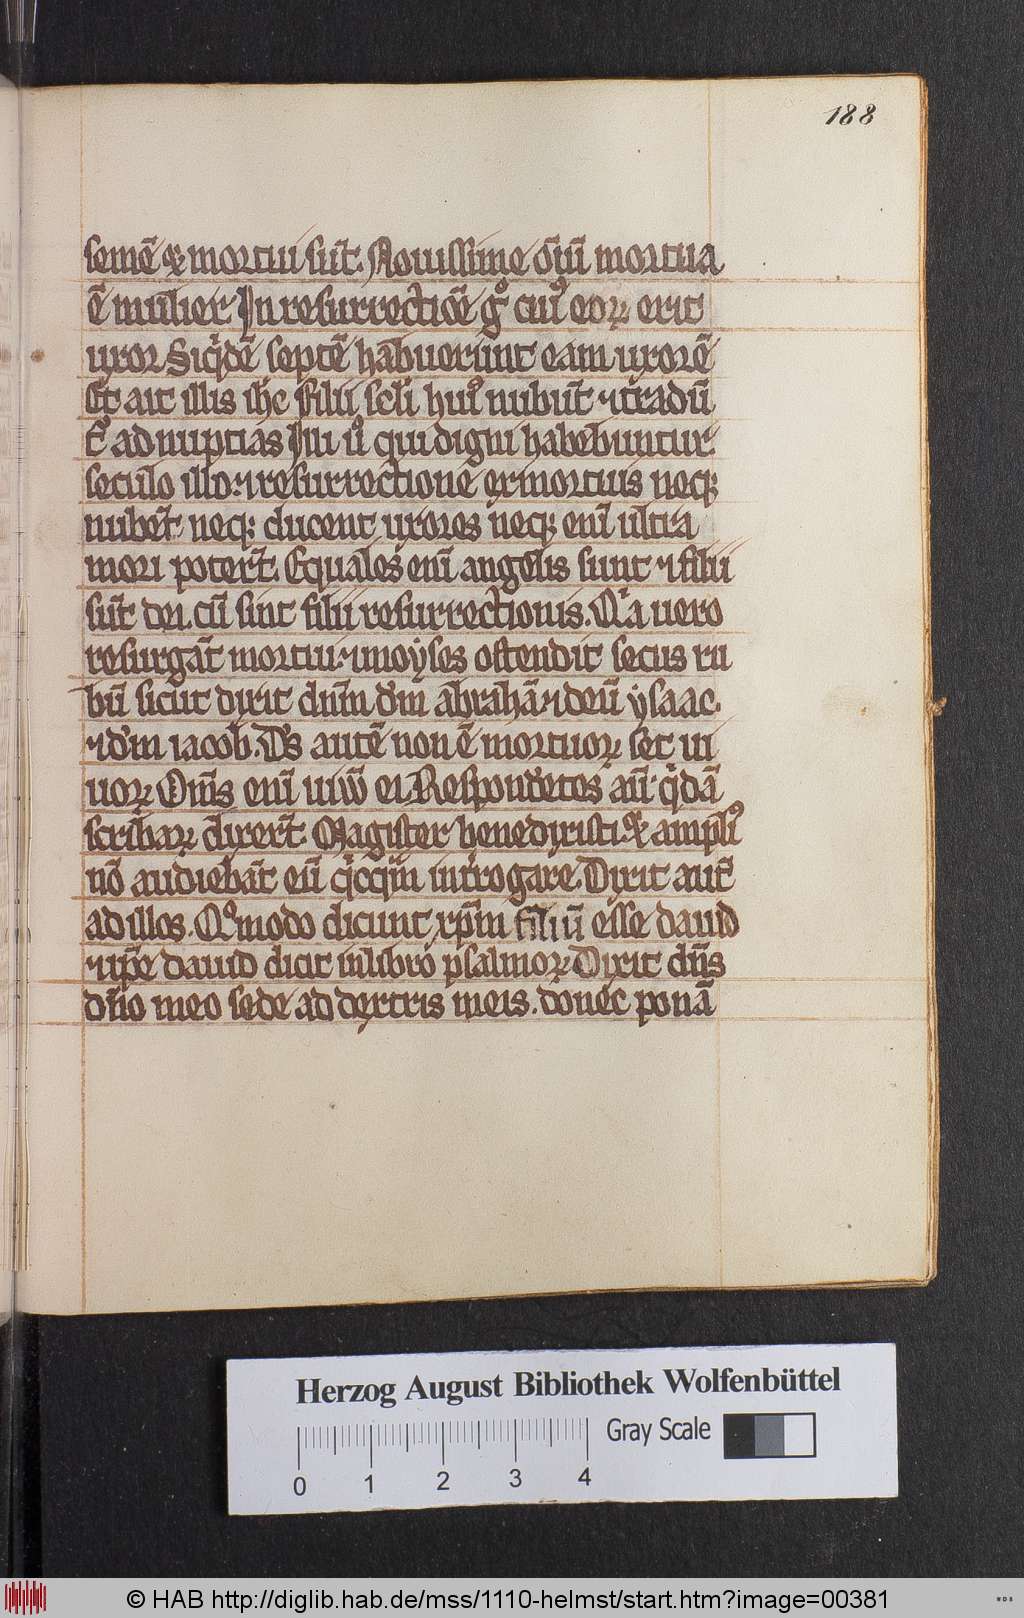 188
semē & mortui sūt. Nouissime oīuȝ mortua
ē mulier In resurrectiōe gͦ cuiꝰ eoꝝ erit
uxor Siqͥdē septē habuerunt eam uxorē
Et ait illis ihc filii scl̄i huiꝰ nubūt ⁊ tͣadūt
tꝰ ad nuptias Illi uͦ qui digni habebuntur
seculo illo. ⁊ resurrectione ex mortuis neqꝫ
nubēt. neqꝫ ducent uxores neqꝫ eni̅ ultra
mori poterūt. Equales eni̅ angelis sunt ⁊ filii
sūt dei. cū sint filii resurrectionis. Qͥa uero
resurgāt mortui. ⁊ moyses ostendit secus ru
bū sicut dixit dn̄m dm̄ abrahā ⁊ deū ysaac.
⁊ dm̄ iacob. Ds̄ autē non ē mortuoꝝ set ui
uoꝝ Om̄s eni̅ uiūt ei Respondētes aūt qͥdā
scribaꝝ dixerūt. Magister bene dixisti. & ampliꝰ
nō audiebāt eū qͥcqͣm introgare. Dixit aut̄
ad illos. Qͦmodo dicunt xp̄m filiū esse dauid
⁊ ip̄e dauid dicit in libro psalmoꝝ Dixit dn̄s
dn̄o meo sede ad dextris meis. donec ponā
Herzog August Bibliothek Wolfenbüttel
Gray Scale
0 1 2 3 4
© HAB http://diglib.hab.de/mss/1110-helmst/start.htm?image=00381